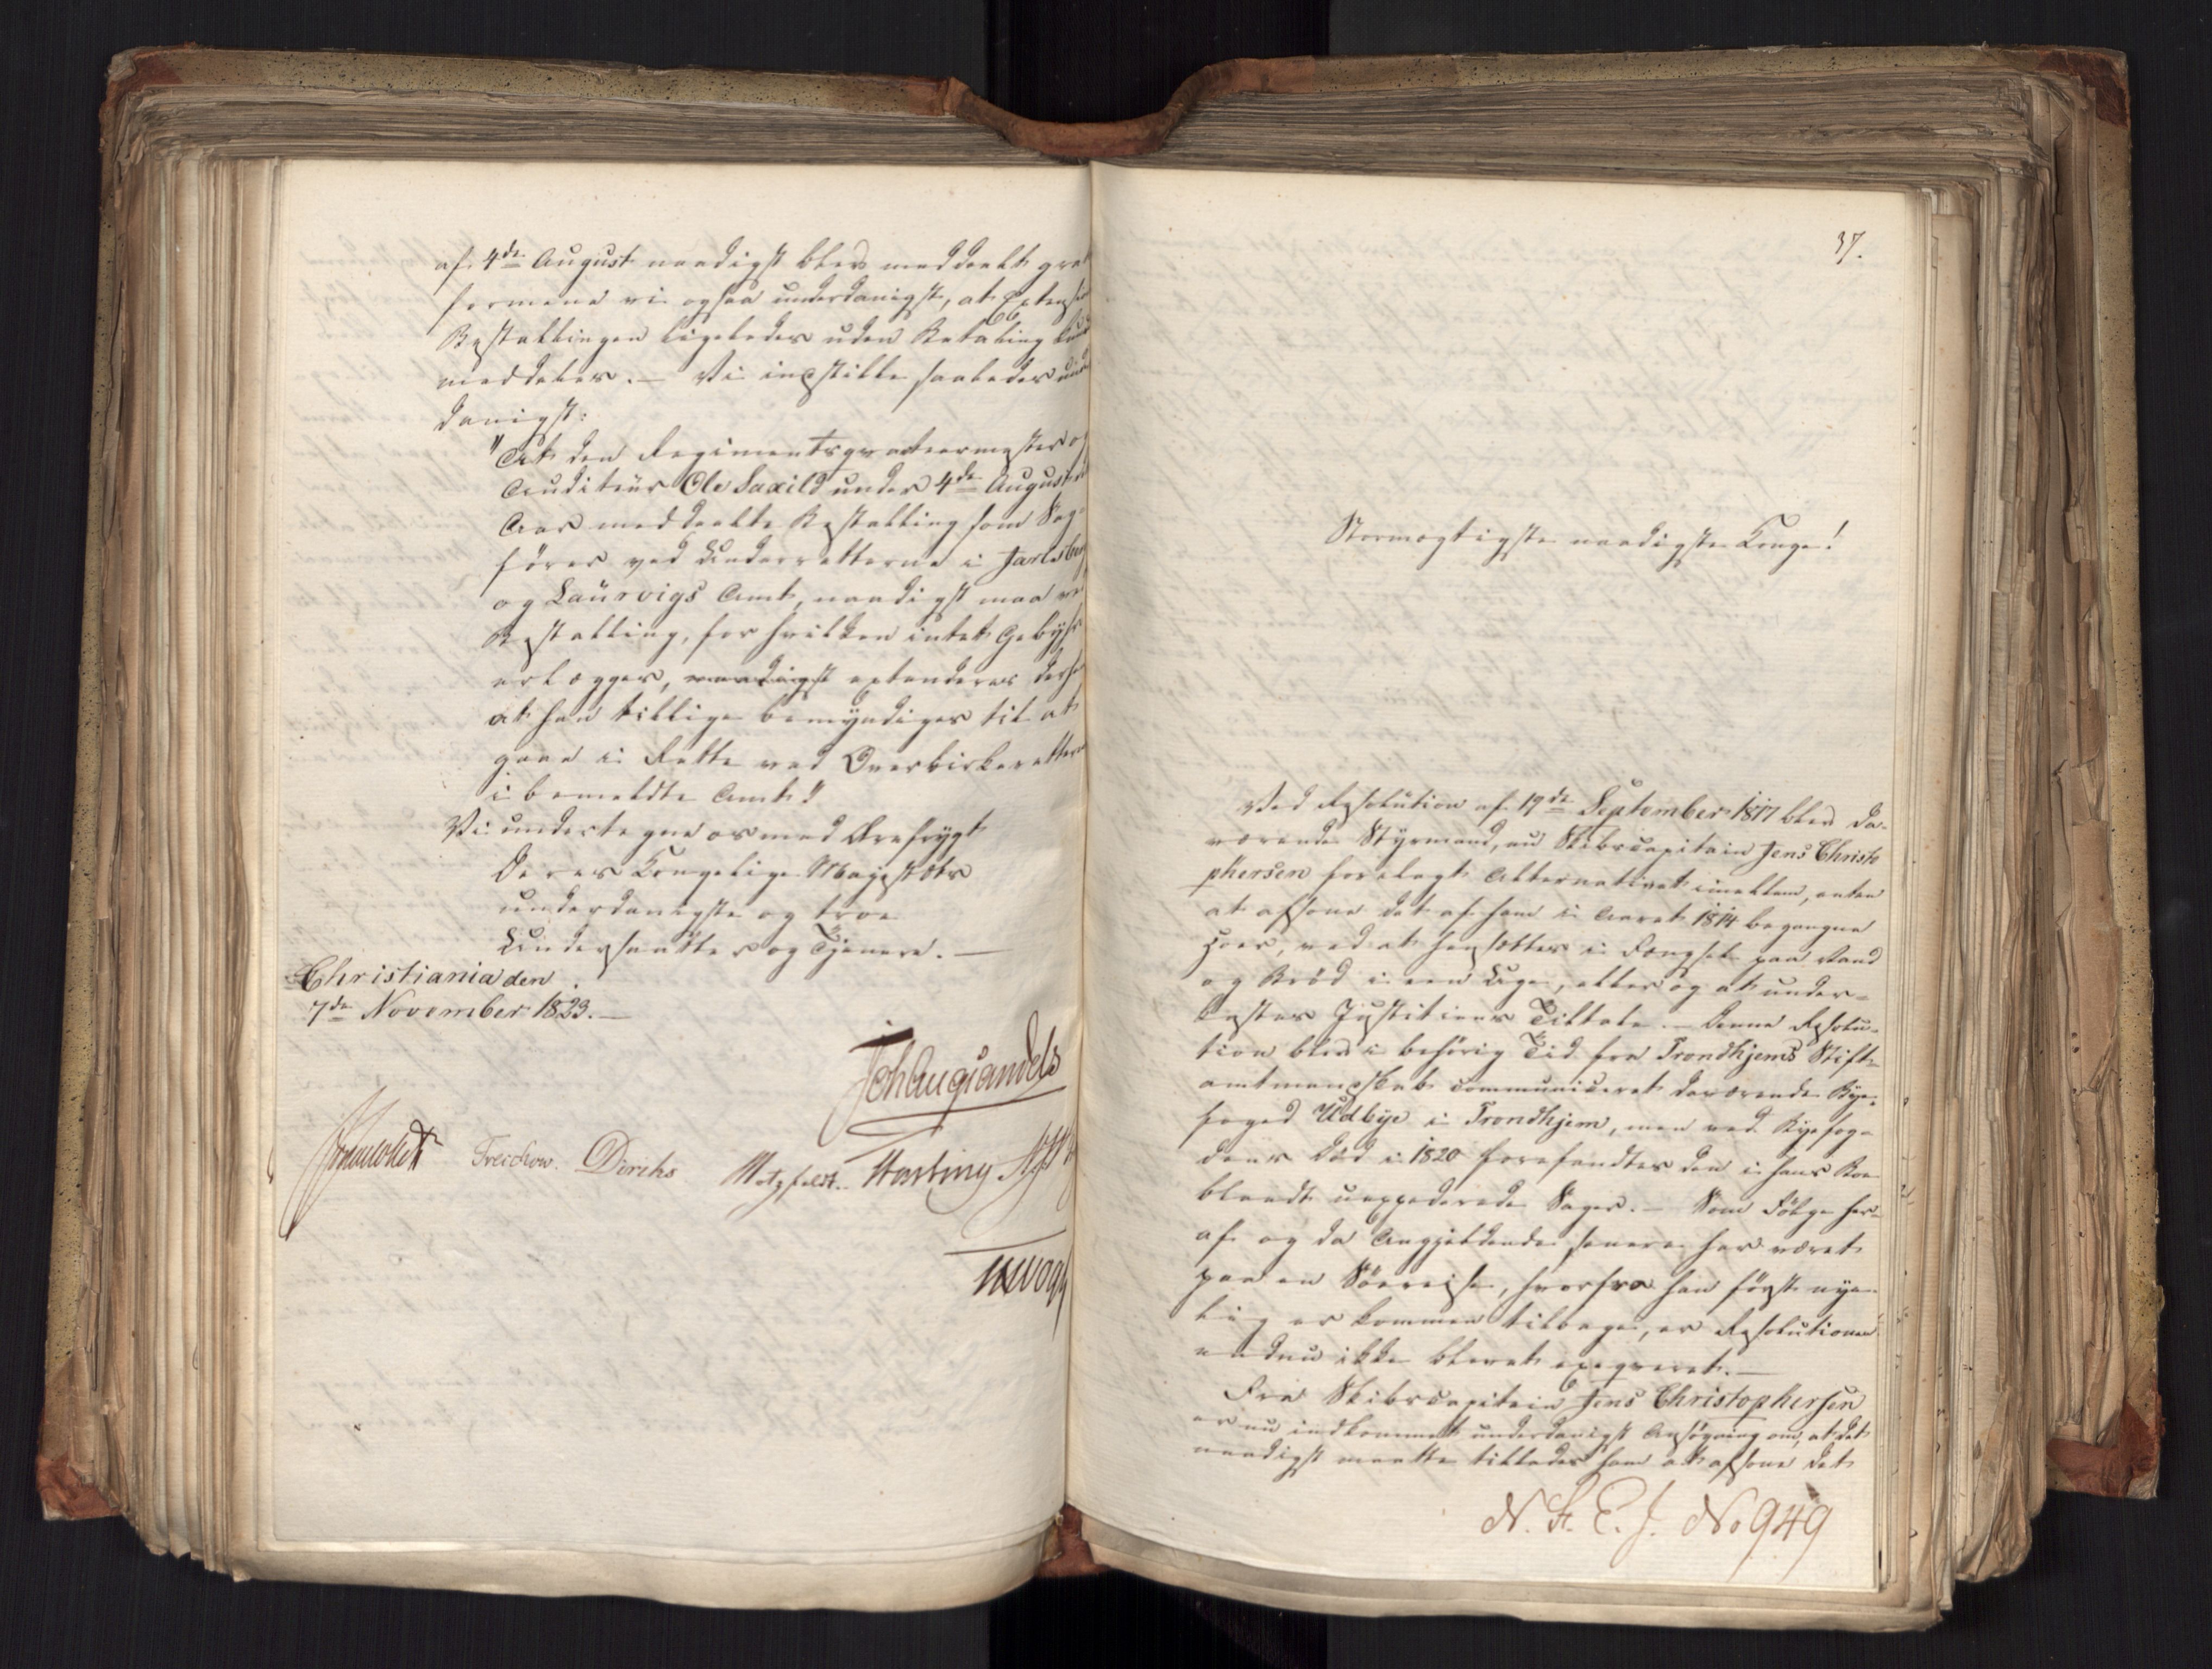 af 4de August naadigst blev meddeelt gra
formene vi ogsaa underdanigst, at Extensi
Bestallingen ligeledes uden Betaling kun
meddeles. – Vi indstille saaledes und
danigst:
"At den Regimentsqvarteermester og
Auditeur Ole Saxild under 4de August
Aar meddeelte Bestalling som Sag-
förer ved Underretterne i Jarlsberg
og Laurvigs Amt, naadigst maa ved
Bestalling, for hvilken intet Gebyhr
erlægges, naadigst extenderes derhen
at han tillige bemyndiges til at
gaae i Rette ved Overbirkeretterne
i bemeldte Amt."
Vi undertegne os med Ærefrygt
Deres Kongelige Majestæts
underdanigste og troe
Undersaatter og Tjenere. –
Christiania den
7de November 1823. –
Joh Aug Sandels
Treschow. Diriks Motzfeldt. Hasting
37.
Stormægtigste naadigste Konge!
Ved Resolution af 19de September 1817 blev da-
værende Styrmand, nu Skibscapitain Jens Christo
phersen forelagt Alternativet imellem, enten
at afsone det af ham i Aaret 1814 begangne
Hoer, ved at hensættes i Fængsel paa Vand
og Bröd i een Uge, eller og at under-
kastes Justitiens Tiltale. – Denne Resolu-
tion blev i behörig Tid fra Trondhjems Stift-
amtmandskab communiceret daværende Bye-
foged Udbye i Trondhjem, men ved Byefog-
dens Död i 1820 forefandtes den i hans Boe
blandt uexpederede Sager. – Som Fölge her-
af og da Angjeldende senere har været
paa en Söereise, hvorfra han först nye-
lig er kommen tilbage, er Resolutionen
endnu ikke blevet exeqveret. –
Fra Skibscapitain Jens Christophersen
er nu indkommet underdanigst Ansögning om, at det
naadigst maatte tillades ham at afsone det
N. St. E. J. No 949